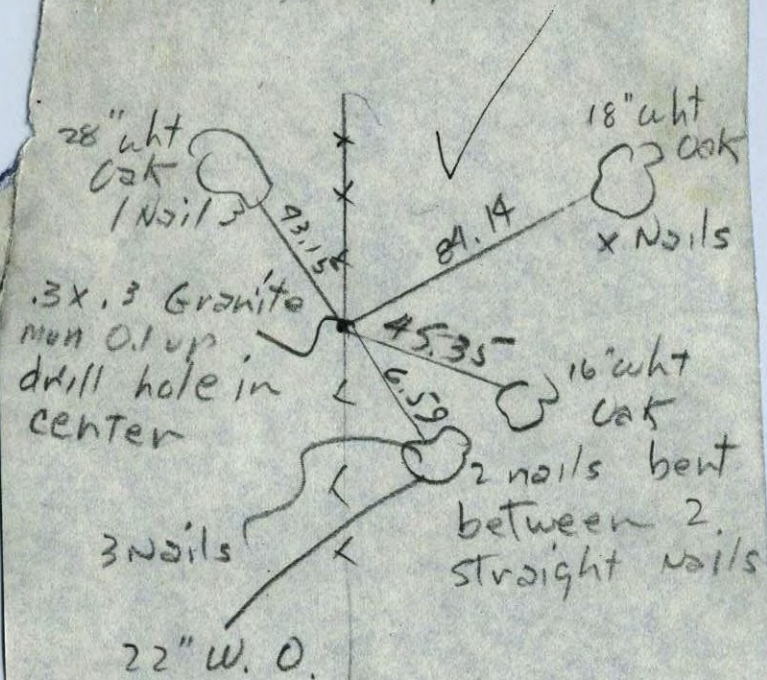 28" wht
Oak
1 Nail
18" wht
Oak
x Nails
84.14
.3 x .3 Granite
Mon 0.1 up
drill hole in
center
45.35
16" wht
Oak
6.59
2 nails bent
between 2
straight nails
3 Nails
22" W. O.